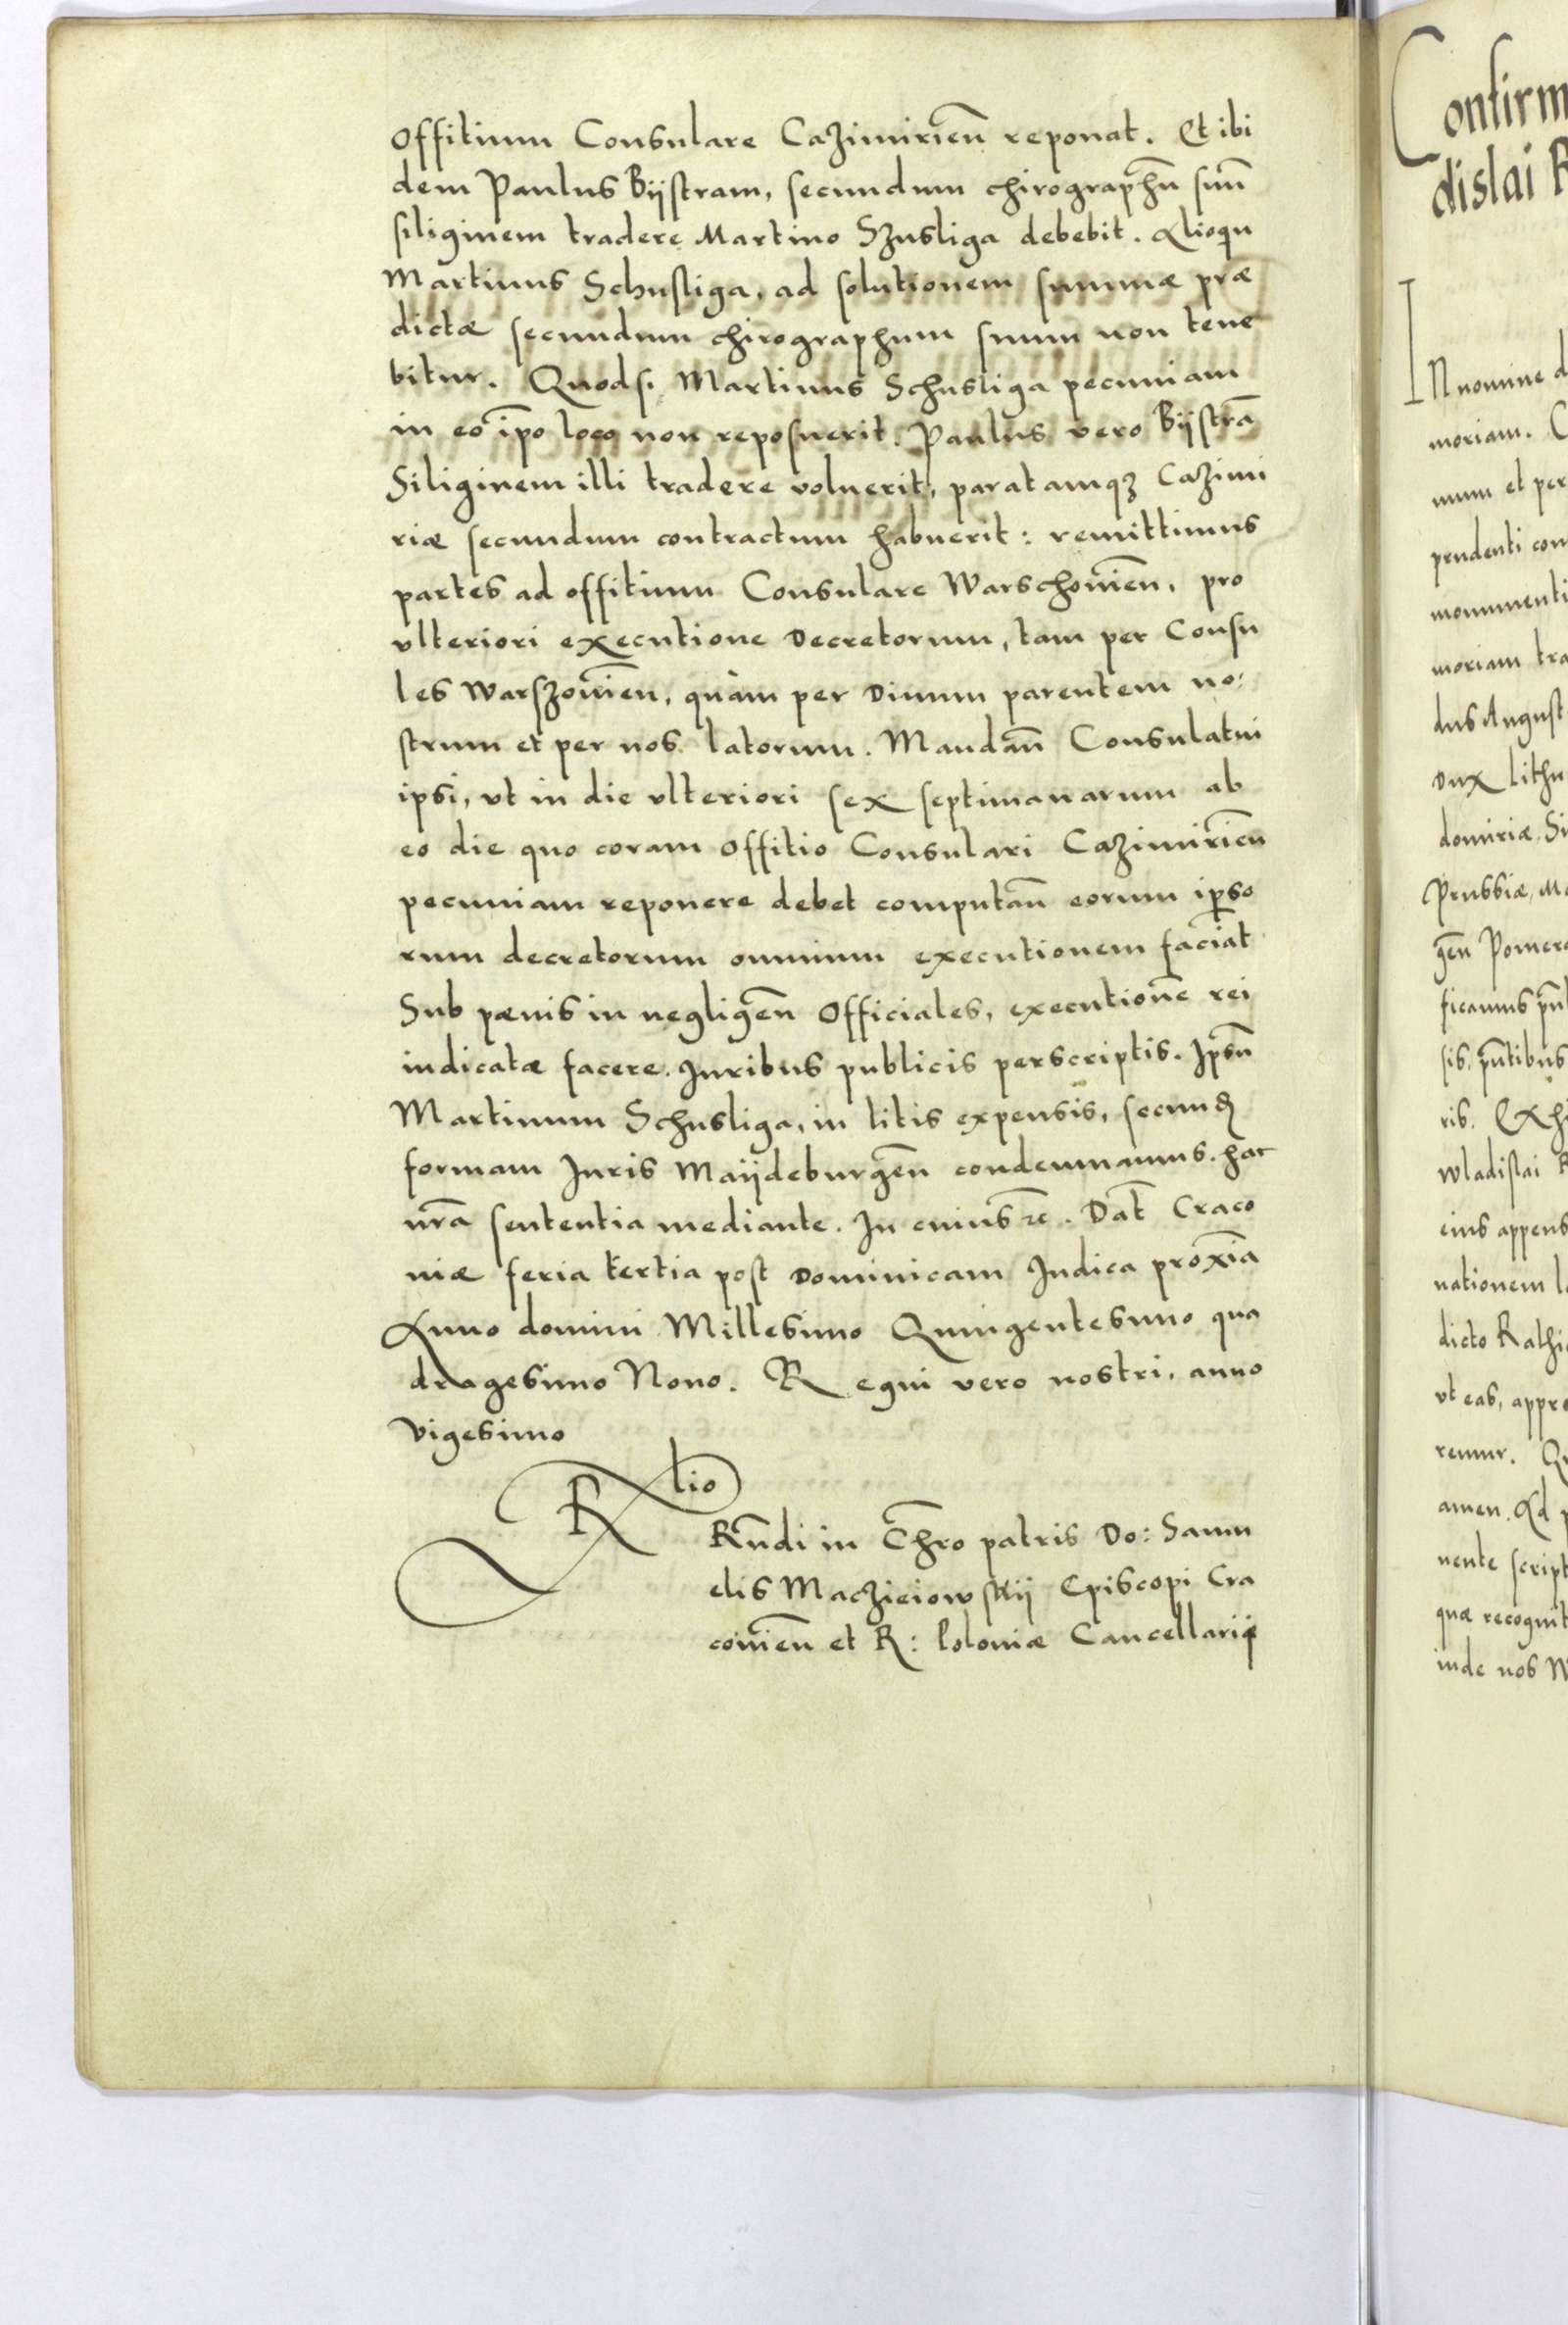 Offitium Consulare Cazimirień reponat. Et ibi
dem Paulus Bijstram, secundum chirographū suū
siliginem tradere Martino Szusliga debebit. Alioqu
Martinus Schusliga, ad solutionem summæ præ
dictæ secundum chirographum suum non tene
bitur. Quodsi Martinus Schusliga pecuniam
in eo īpo loco non reposuerit. Paulus vero Bijstrā
Siliginem illi tradere voluerit, paratamqꝫ Cazimi
riæ secundum contractum habuerit: remittimus
partes ad offitium Consulare Warschovień, pro
vlteriori executione Decretorum, tam per Consu
les Warszovień, quàm per Diuum parentem no:
strum et per nos latorum. Mandań Consulatui
ipsi, vt in die vlteriori sex septimanarum ab
eo die quo coram offitio Consulari Cazimirień
pecuniam reponere debet computań eorum ipso
rum decretorum omnium executionem faciat
Sub pœnis in negligeń Officiales, executionē rei
iudicatæ facere. Iuribus publicis perscriptis. Ipsū
Martinum Schusliga, in litis expensis, secund
formam Iuris Maijdeburgeń condemnamus. hac
nrā sententia mediante. In cuius rē. Dat̄ Craco
niæ feria tertia post Dominicam Iudica proxīa
Anno domini Millesimo Quingentesimo qua
dragesimo Nono. Regni vero nostri, anno
vigesimo
Rlio
Rńdi in Chro patris Do: Samu
elis Maczieiowskij Episcopi Cra
covień et R: Poloniæ Cancellarij
Confirm
dislai R
IN nomine d
moriam. C
mum et per
prudenti con
monumenti
moriam tra
dus August
Dux lithu
domiriæ, Si
Prussiæ, Ma
geń Pomera
ficamus
sis, pńtibus
ris. Exhi
wladislai R
eius appens
nationem
dicto Rathi
vt eas, appro
remur. Qu
amen. Ad p
nente script
quæ recognit
inde nos W